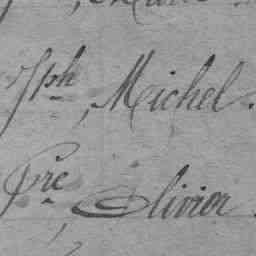 Jph, Michel.
Pre, Olivier.